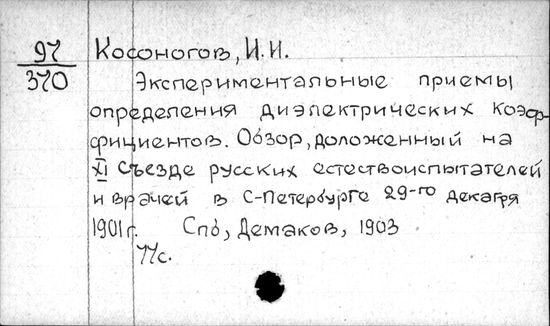 97 Косоногов, И.И.
370 Экспериментальные приемы
определения диэлектрических коэф-
фициентов. Обзор, доложенный на
XI съезде русских естествоиспытателей
и врачей в С-Петербурге 29-го декабря
1901г. Спб, Демаков, 1903
77с.